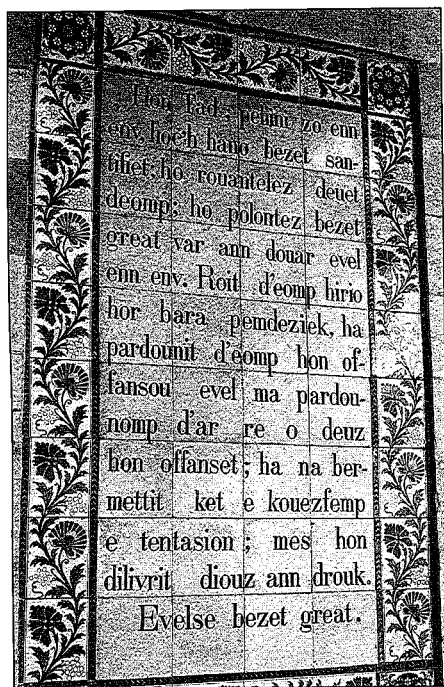 Hon Tad, pehini zo enn
env, hoc'h hano bezet san-
tifiet; ho rouantelez deuet
deomp; ho polontez bezet
great var ann douar evel
enn env. Roit d'eomp hirio
hor bara pemdeziek, ha
pardounit d'eomp hon of-
fansou evel ma pardou-
nomp d'ar re o deuz
hon offanset; ha na ber-
mettit ket e kouezfemp
e tentasion; mes hon
dilivrit diouz ann drouk.
Evelse bezet great.